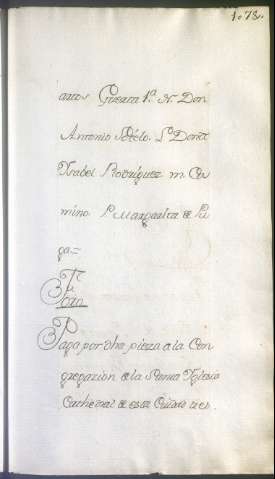 1.078.
años Gueara 1ª N. Don
Antonio Sotelo. Pº Donª
Ysabel Rodriguez m. Ca
mino. Pº Margarita de Pu
ga=
Paga por dha pieza a la Con
gregazion de la Santa Yglesia
Cathedral de esta Ciudad